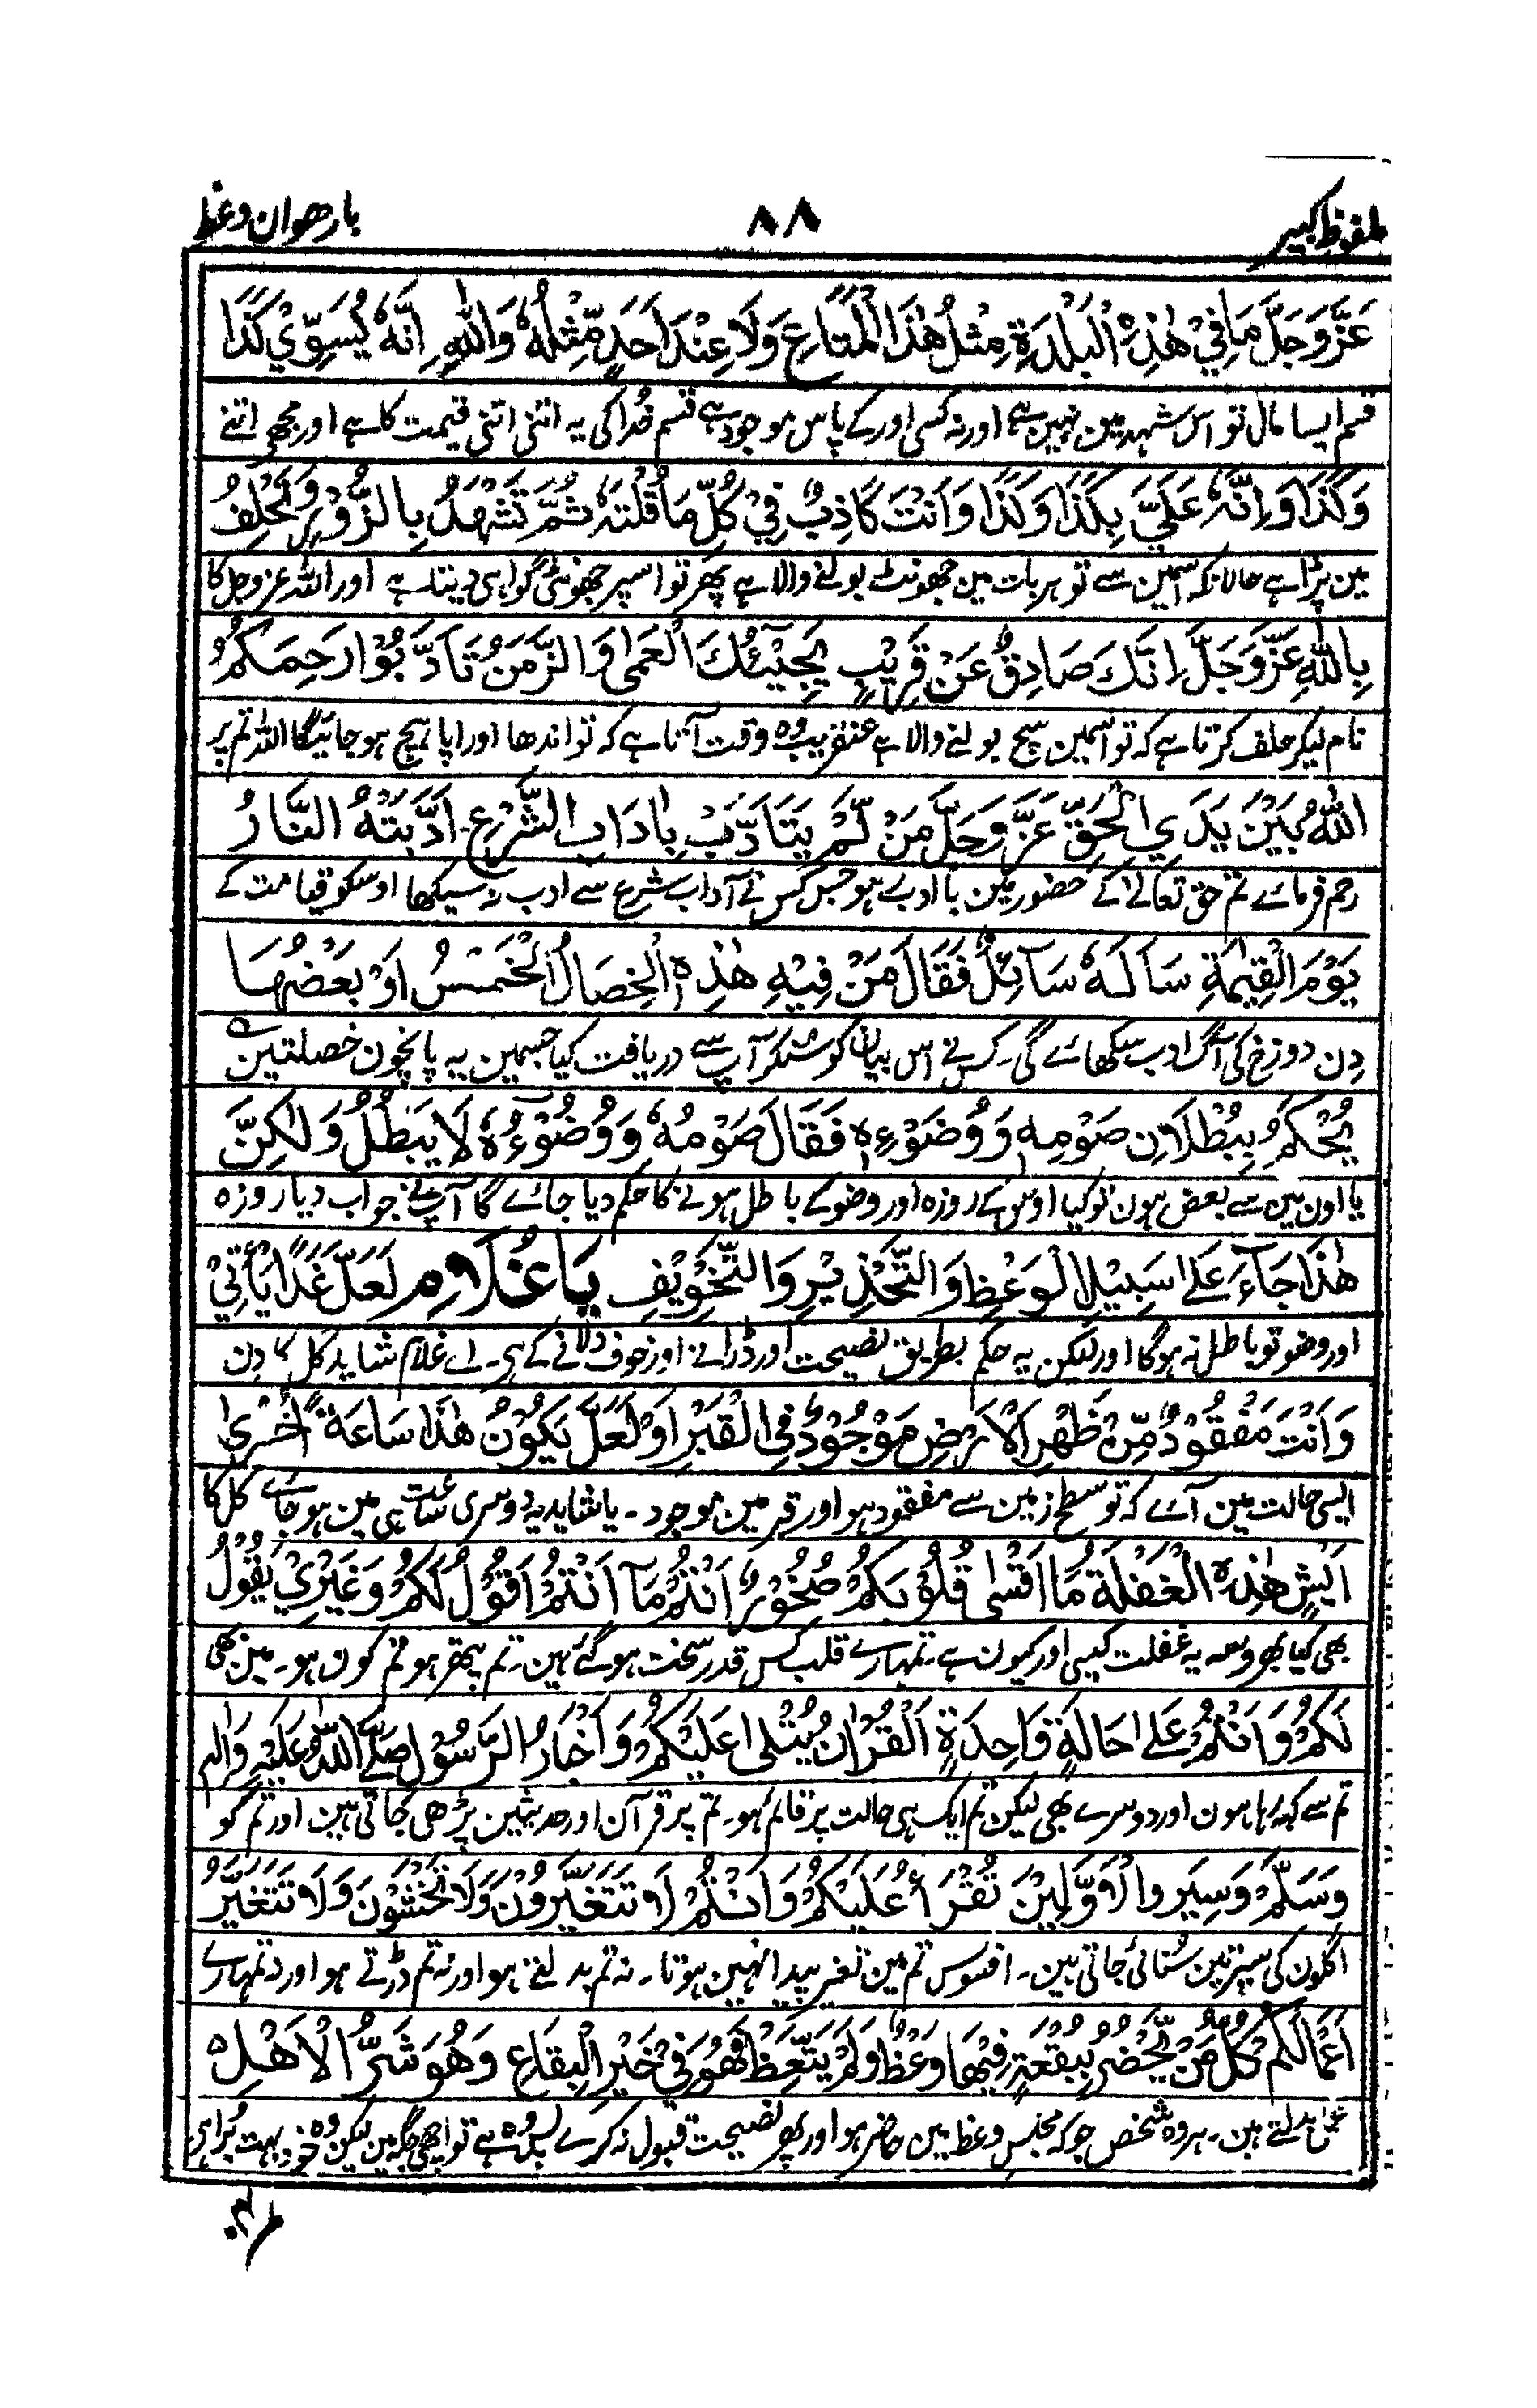 ملفوظ کبیر
۸۸
بارھوان وعظ
عَزَّوَجَلَّ مَا فِيْ هٰذِهِ الْبَلْدَةِ مِثْلُ هٰذَا الْمَتَاعِ وَلَا عِنْدَ اَحَدٍ مِّثْلُهٗ وَاللّٰهِ اِنَّهٗ يُسَوِّيْ كَذَا
قسم ایسا مال تو اس شہر مین نہین ہے اور نہ کسی اور کے پاس موجود ہے قسم خدا کی یہ اتنی اتنی قیمت کا ہے اور مجھے اتنے
وَكَذَا وَاِنَّهٗ عَلَيَّ بِكَذَا وَكَذَا وَاَنْتَ كَاذِبٌ فِيْ كُلِّ مَا قُلْتَهٗ ثُمَّ تَشْهَدُ بِالزُّوْرِ وَتَحْلِفُ
مین پڑا ہے حالانکہ اسمین سے تو ہر بات مین جھونٹ بولنے والا ہے پھر تو اسپر جھونٹی گواہی دیتا ہے اور اللہ عزوجل کا
بِاللّٰهِ عَزَّوَجَلَّ اِنَّكَ صَادِقٌ عَنْ قَرِيْبٍ يَجِيْٓئُكَ الْعَمٰى وَالزَّمَنُ تَاَدَّبُوْا رَحِمَكُمُ
نام لیکر حلف کرتا ہے کہ تو اسمین سچ بولنے والا ہے عنقریب وہ وقت آتا ہے کہ تو اندھا اور اپاہیج ہو جائیگا اللہ تم پر
اللّٰهُ بَيْنَ يَدَيِ الْحَقِّ عَزَّوَجَلَّ مَنْ لَّمْ يَتَاَدَّبْ بِاٰدَابِ الشَّرْعِ اَدَّبَتْهُ النَّارُ
رحم فرمائے تم حق تعالےٰ کے حضور مین با ادب ہو جس کسی نے آداب شرع سے ادب نہ سیکھا اوسکو قیامت کے
يَوْمَ الْقِيٰمَةِ سَاَلَهٗ سَآئِلٌ فَقَالَ مَنْ فِيْهِ هٰذِهِ الْخِصَالُ الْخَمْسُ اَوْ بَعْضُهَا
دن دوزخ کی آگ ادب سکھائے گی۔ کسی نے اس بیان کو سنکر آپ سے دریافت کیا جسمین یہ پانچون خصلتین
يُحْكَمُ بِبُطْلَانِ صَوْمِهٖ وَوُضُوْءِهٖ فَقَالَ صَوْمُهٗ وَوُضُوْءُهٗ لَا يَبْطُلُ وَلٰكِنَّ
یا اون مین سے بعض ہون تو کیا اوس کے روزہ اور وضو کے باطل ہونے کا حکم دیا جائے گا آپنے جواب دیا روزہ
هٰذَا جَآءَ عَلٰى سَبِيْلِ الْوَعْظِ وَالتَّحْذِيْرِ وَالتَّخْوِيْفِ يَا غُلَامُ لَعَلَّ غَدًا يَأْتِيْ
اور وضو تو باطل نہ ہوگا اور لیکن یہ حکم بطریق نصیحت اور ڈرانے اور خوف دلانے کے ہی۔ اے غلام شاید کل کا دن
وَاَنْتَ مَفْقُوْدٌ مِّنْ ظَهْرِ الْاَرْضِ مَوْجُوْدٌ فِي الْقَبْرِ اَوْ لَعَلَّ يَكُوْنُ هٰذَا سَاعَةً اُخْرٰى
ایسی حالت مین آئے کہ تو سطح زمین سے مفقود ہو اور قبر مین موجود۔ یا شاید یہ دوسری ساعت ہی مین ہو جائے کل کا
اَيْشٍ هٰذِهِ الْغَفْلَةُ مَا اَقْسٰى قُلُوْبَكُمْ صُخُوْرٌ اَنْتُمْ مَآ اَنْتُمْ اَقُوْلُ لَكُمْ وَغَيْرِيْ يَقُوْلُ
بھی کیا بھروسہ یہ غفلت کیسی اور کیون ہے۔ تمہارے قلب کس قدر سخت ہو گئے ہین۔ تم پتھر ہو تم کون ہو۔ مین بھی
لَكُمْ وَاَنْتُمْ عَلٰى حَالَةٍ وَاحِدَةٍ اَلْقُرْاٰنُ يُتْلٰى عَلَيْكُمْ وَاَخْبَارُ الرَّسُوْلِ صَلَّى اللّٰهُ عَلَيْهِ وَاٰلِهٖ
تم سے کہہ رہا ہون اور دوسرے بھی لیکن تم ایک ہی حالت پر قائم ہو۔ تم پر قرآن اور حدیثین پڑھی جاتی ہین اور تم کو
وَسَلَّمَ وَسِيَرُ الْاَوَّلِيْنَ تُقْرَأُ عَلَيْكُمْ وَاَنْتُمْ لَا تَتَغَيَّرُوْنَ وَلَا تَخْشَوْنَ وَلَا تَتَغَيَّرُ
اگلون کی سیرتین سنائی جاتی ہین۔ افسوس تم مین تغیر پیدا نہین ہوتا۔ نہ تم بدلتے ہو اور نہ تم ڈرتے ہو اور نہ تمہارے
اَعْمَالُكُمْ كُلُّ مَنْ يَّحْضُرُ بِبُقْعَةٍ فِيْهَا وَعْظٌ وَلَمْ يَتَّعِظْ فَهُوَ فِيْ خَيْرِ الْبِقَاعِ وَهُوَ شَرُّ الْاَهْلِ
عمل بدلتے ہین۔ ہر وہ شخص جو کہ مجلس وعظ مین حاضر ہو اور پھر نصیحت قبول نہ کرے پس وہ ہے تو اچھی جگہ مین لیکن وہ خود بہت برا ہی